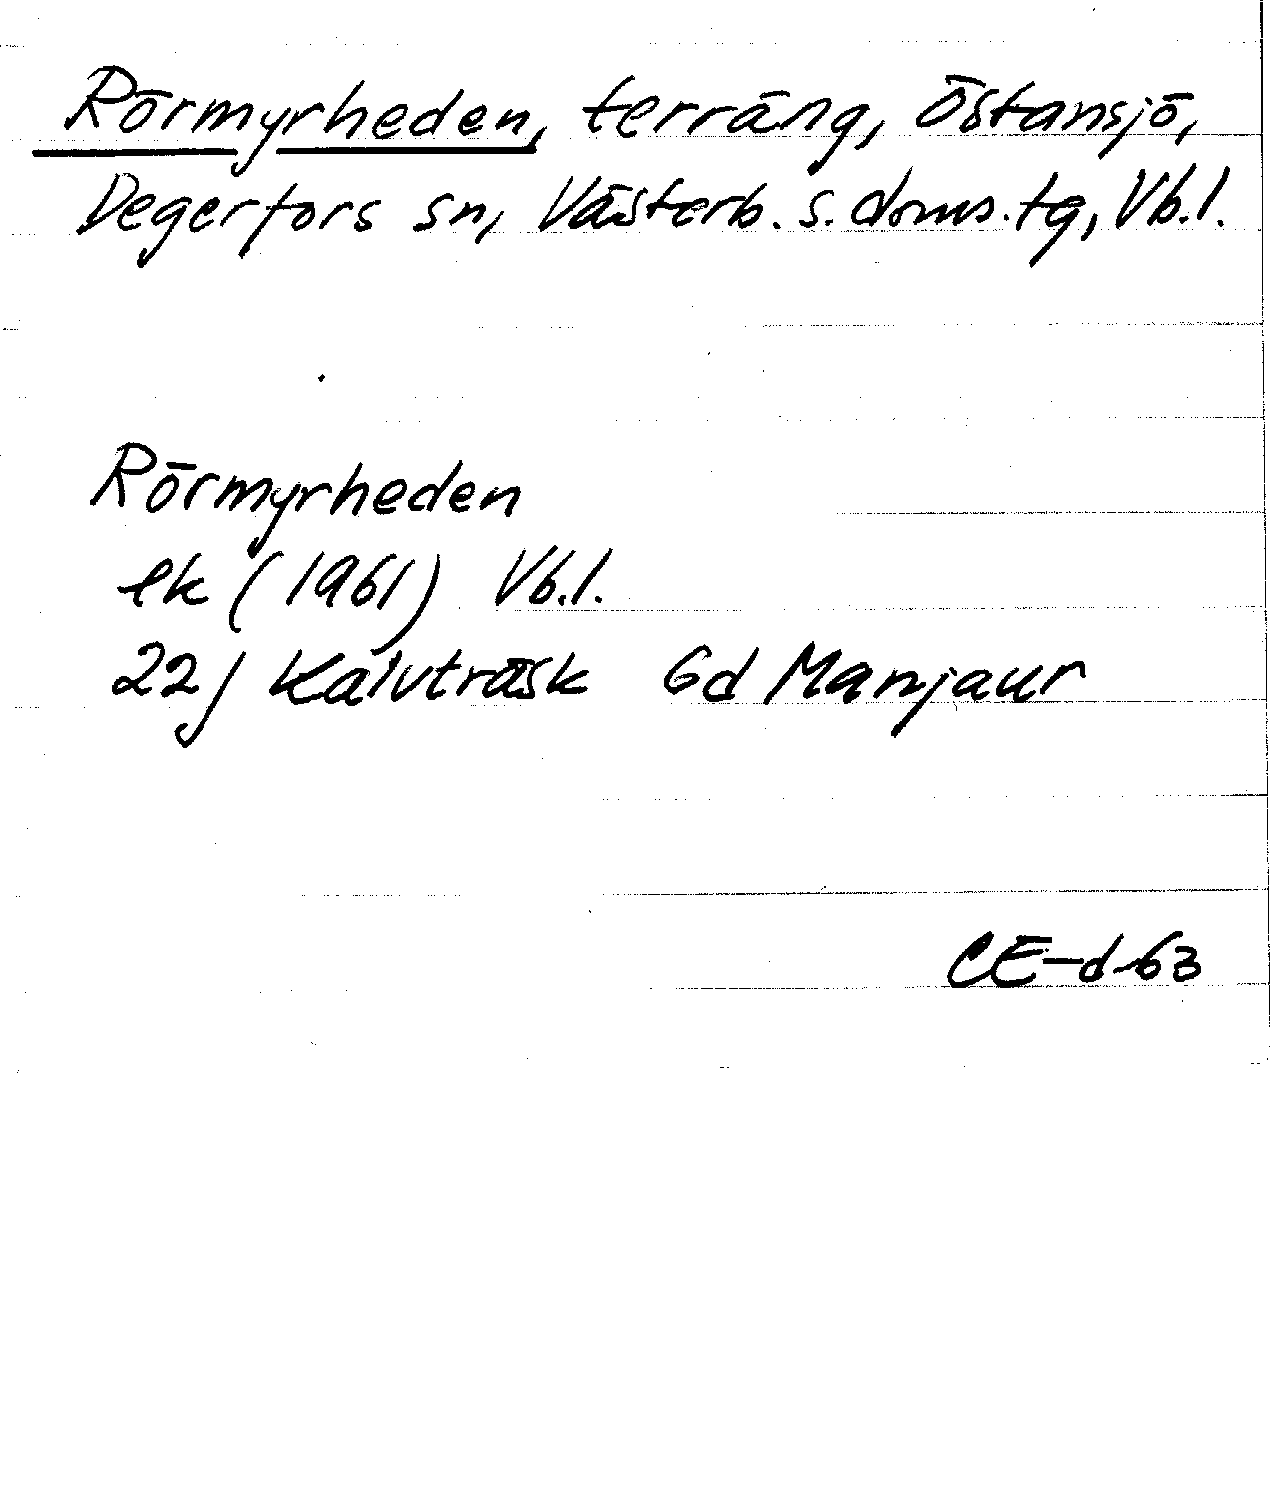 Rörmyrheden, terräng, Östansjö,
Degerfors sn, Västerb. s. doms. tg, Vb. l.
Rörmyrheden
ek (1961) Vb. l.
22 J Kalvträsk 6d Manjaur
CE-d-63